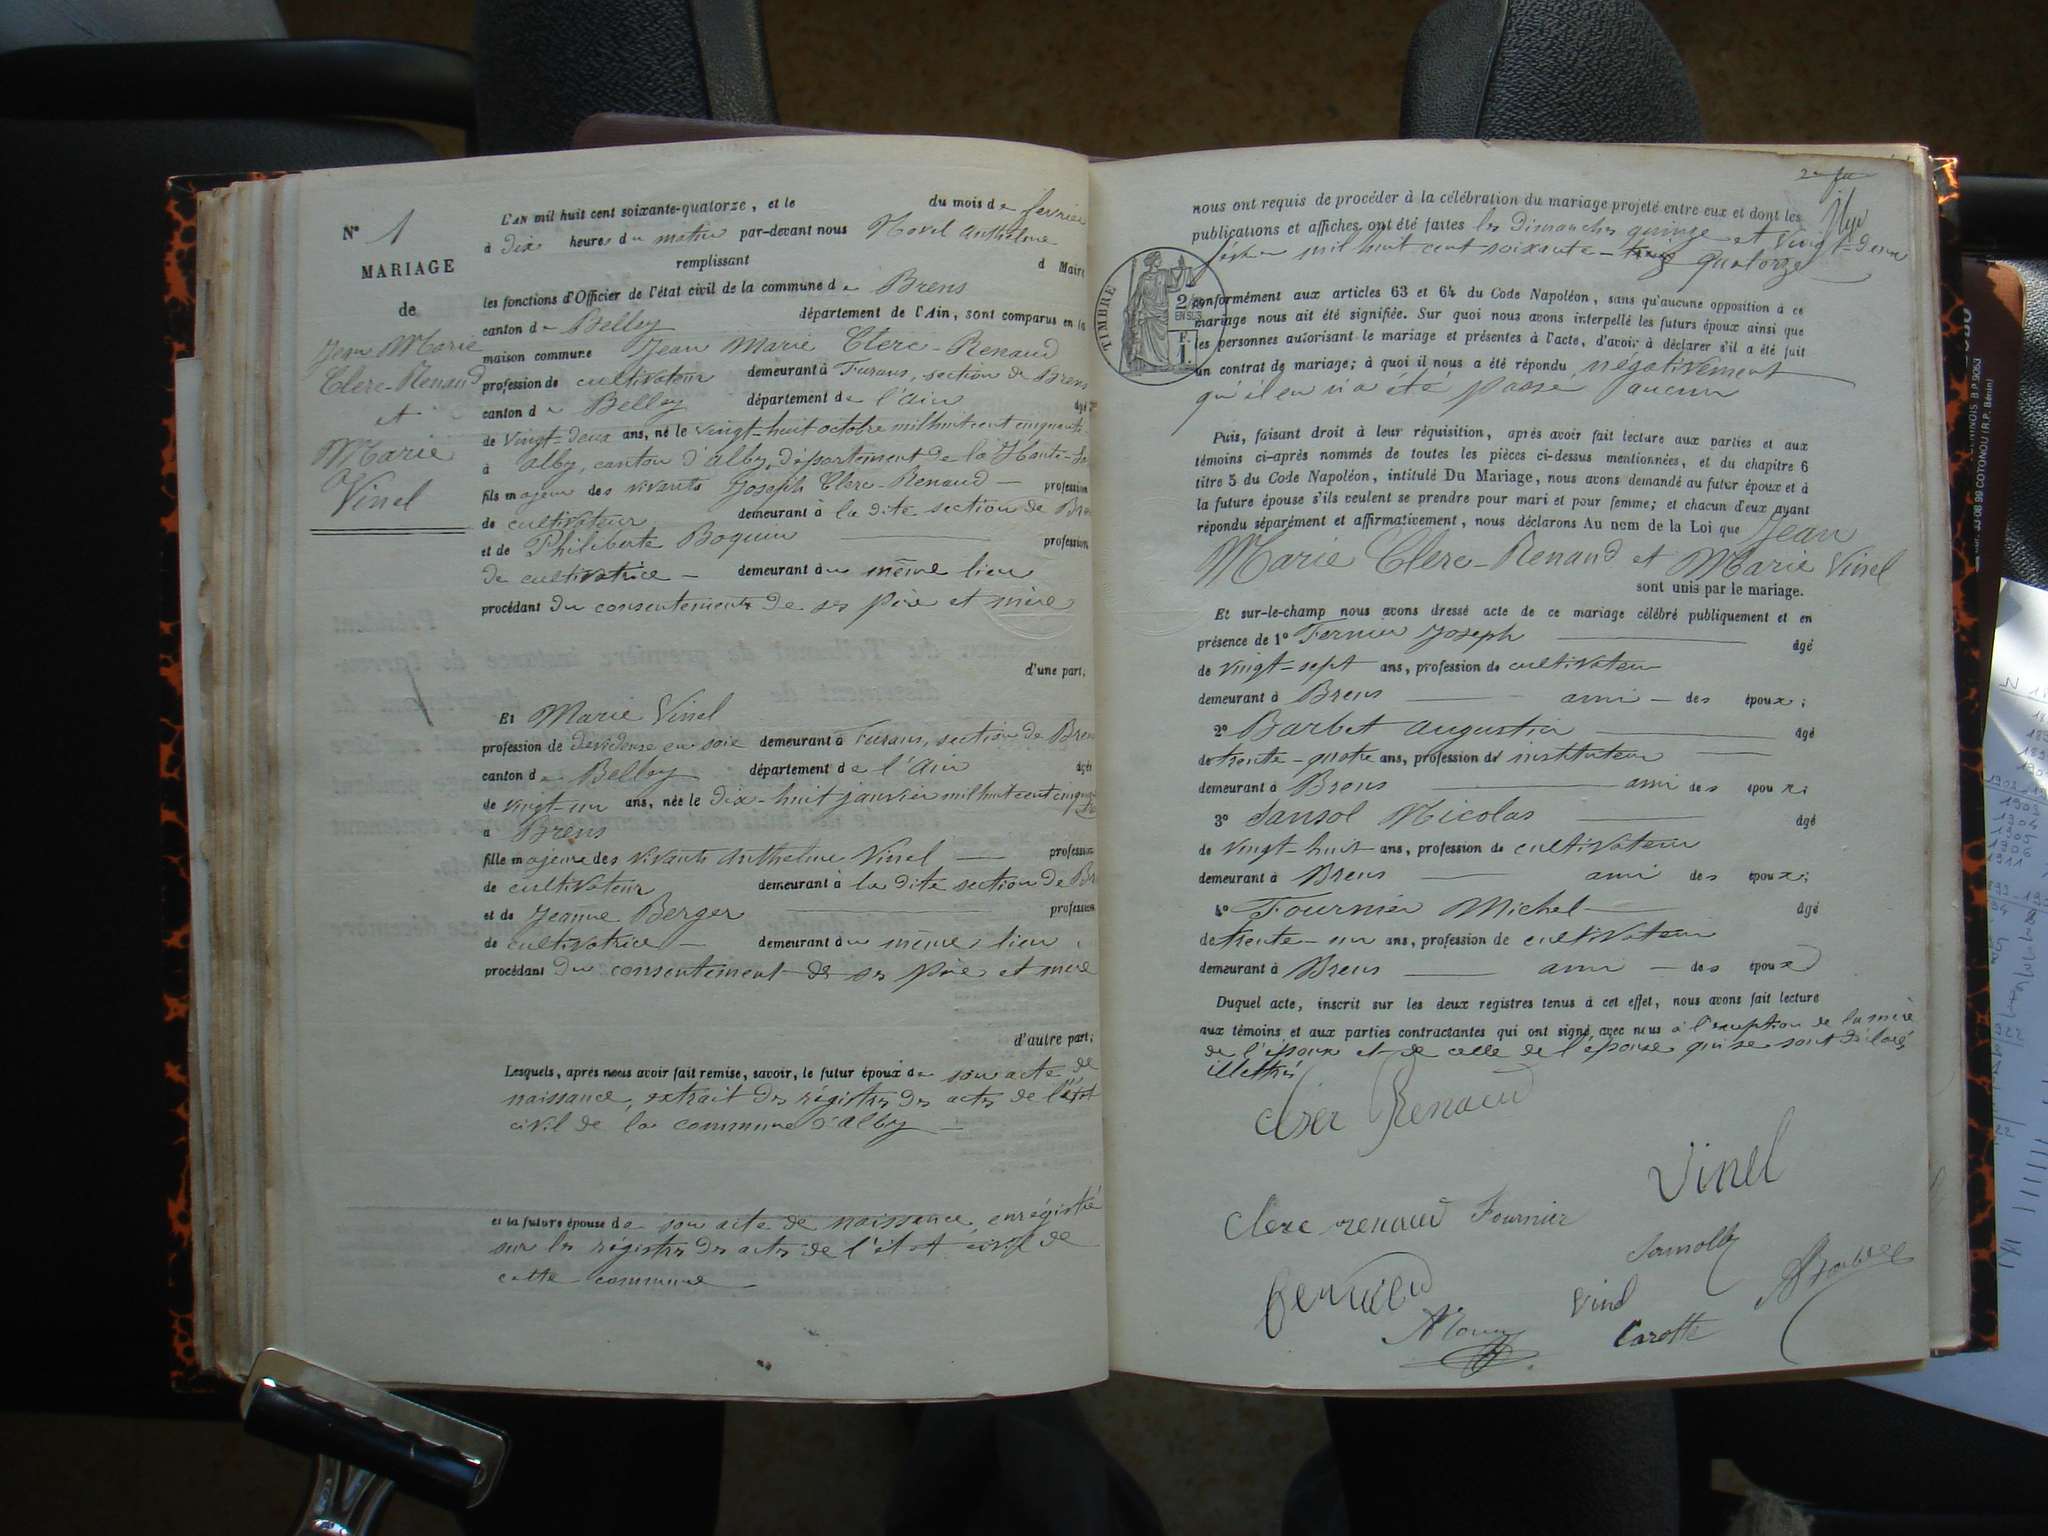 N° 1
MARIAGE
de
Jean Marie
Clerc-Renaud
et
Marie
Vinel
L'AN mil huit cent soixante-quatorze, et le du mois de février
à dix heures du matin par-devant nous Anthelme
remplissant d Maire
les fonctions d'Officier de l'état civil de la commune de Brens
canton de Belley département de l'Ain, sont comparus en la
maison commune Jean Marie Clerc-Renaud
profession de cultivateur demeurant à Furans, section de Brens
canton de Belley département de l'Ain âgé
de vingt-deux ans, né le vingt-huit octobre mil huit cent cinquante
à Alby, canton d'Alby, département de la Haute-Sa
fils majeur des vivants Joseph Clerc-Renaud — profession
de cultivateur demeurant à la dite section de Bren
et de Philiberte Boquin profession
de cultivatrice — demeurant au même lieu
procédant du consentement de ses père et mère
d'une part,
Et Marie Vinel
profession de dévideuse en soie demeurant à Furans, section de Bren
canton de Belley département de l'Ain âgée
de vingt-un ans, née le dix-huit janvier mil huit cent cinqu
à Brens
fille majeure des vivants Anthelme Vinel — profession
de cultivateur demeurant à la dite section de Br
et de Jeanne Berger profession
de cultivatrice — demeurant au même lieu,
procédant du consentement de ses père et mère
d'autre part;
Lesquels, après nous avoir fait remise, savoir, le futur époux de son acte de
naissance, extrait des régistres des actes de l'état
civil de la commune d'Alby —
et la future épouse de son acte de naissance, enrégistré
sur les régistres des actes de l'état civil de
cette commune
nous ont requis de procéder à la célébration du mariage projeté entre eux et dont les
publications et affiches ont été faites les dimanches quinze et vingt-deux
février mil huit cent soixante-trois quatorze
TIMBRE
2/10
EN SUS
1 F.
conformément aux articles 63 et 64 du Code Napoléon, sans qu'aucune opposition à ce
mariage nous ait été signifiée. Sur quoi nous avons interpellé les futurs époux ainsi que
les personnes autorisant le mariage et présentes à l'acte, d'avoir à déclarer s'il a été fait
un contrat de mariage; à quoi il nous a été répondu négativement
qu'il en n'a été passé aucun
Puis, faisant droit à leur réquisition, après avoir fait lecture aux parties et aux
témoins ci-après nommés de toutes les pièces ci-dessus mentionnées, et du chapitre 6
titre 5 du Code Napoléon, intitulé Du Mariage, nous avons demandé au futur époux et à
la future épouse s'ils veulent se prendre pour mari et pour femme; et chacun d'eux ayant
répondu séparément et affirmativement, nous déclarons Au nom de la Loi que Jean
Marie Clerc-Renaud et Marie Vinel
sont unis par le mariage.
Et sur-le-champ nous avons dressé acte de ce mariage célébré publiquement et en
présence de 1° Fernier Joseph âgé
de vingt-sept ans, profession de cultivateur
demeurant à Brens — ami — des époux;
2° Barbet Augustin âgé
de trente-quatre ans, profession d'instituteur
demeurant à Brens ami des époux;
3° Sansol Nicolas âgé
de vingt-huit ans, profession de cultivateur
demeurant à Brens — ami des époux;
4° Fournier Michel âgé
de trente-un ans, profession de cultivateur
demeurant à Brens — ami — des époux
Duquel acte, inscrit sur les deux registres tenus à cet effet, nous avons fait lecture
aux témoins et aux parties contractantes qui ont signé avec nous à l'exception de la mère
de l'époux et de celle de l'épouse qui se sont déclarés
illettrés
Renaud
Vinel
Clerc renaud Fournier
Vinel
Carotte